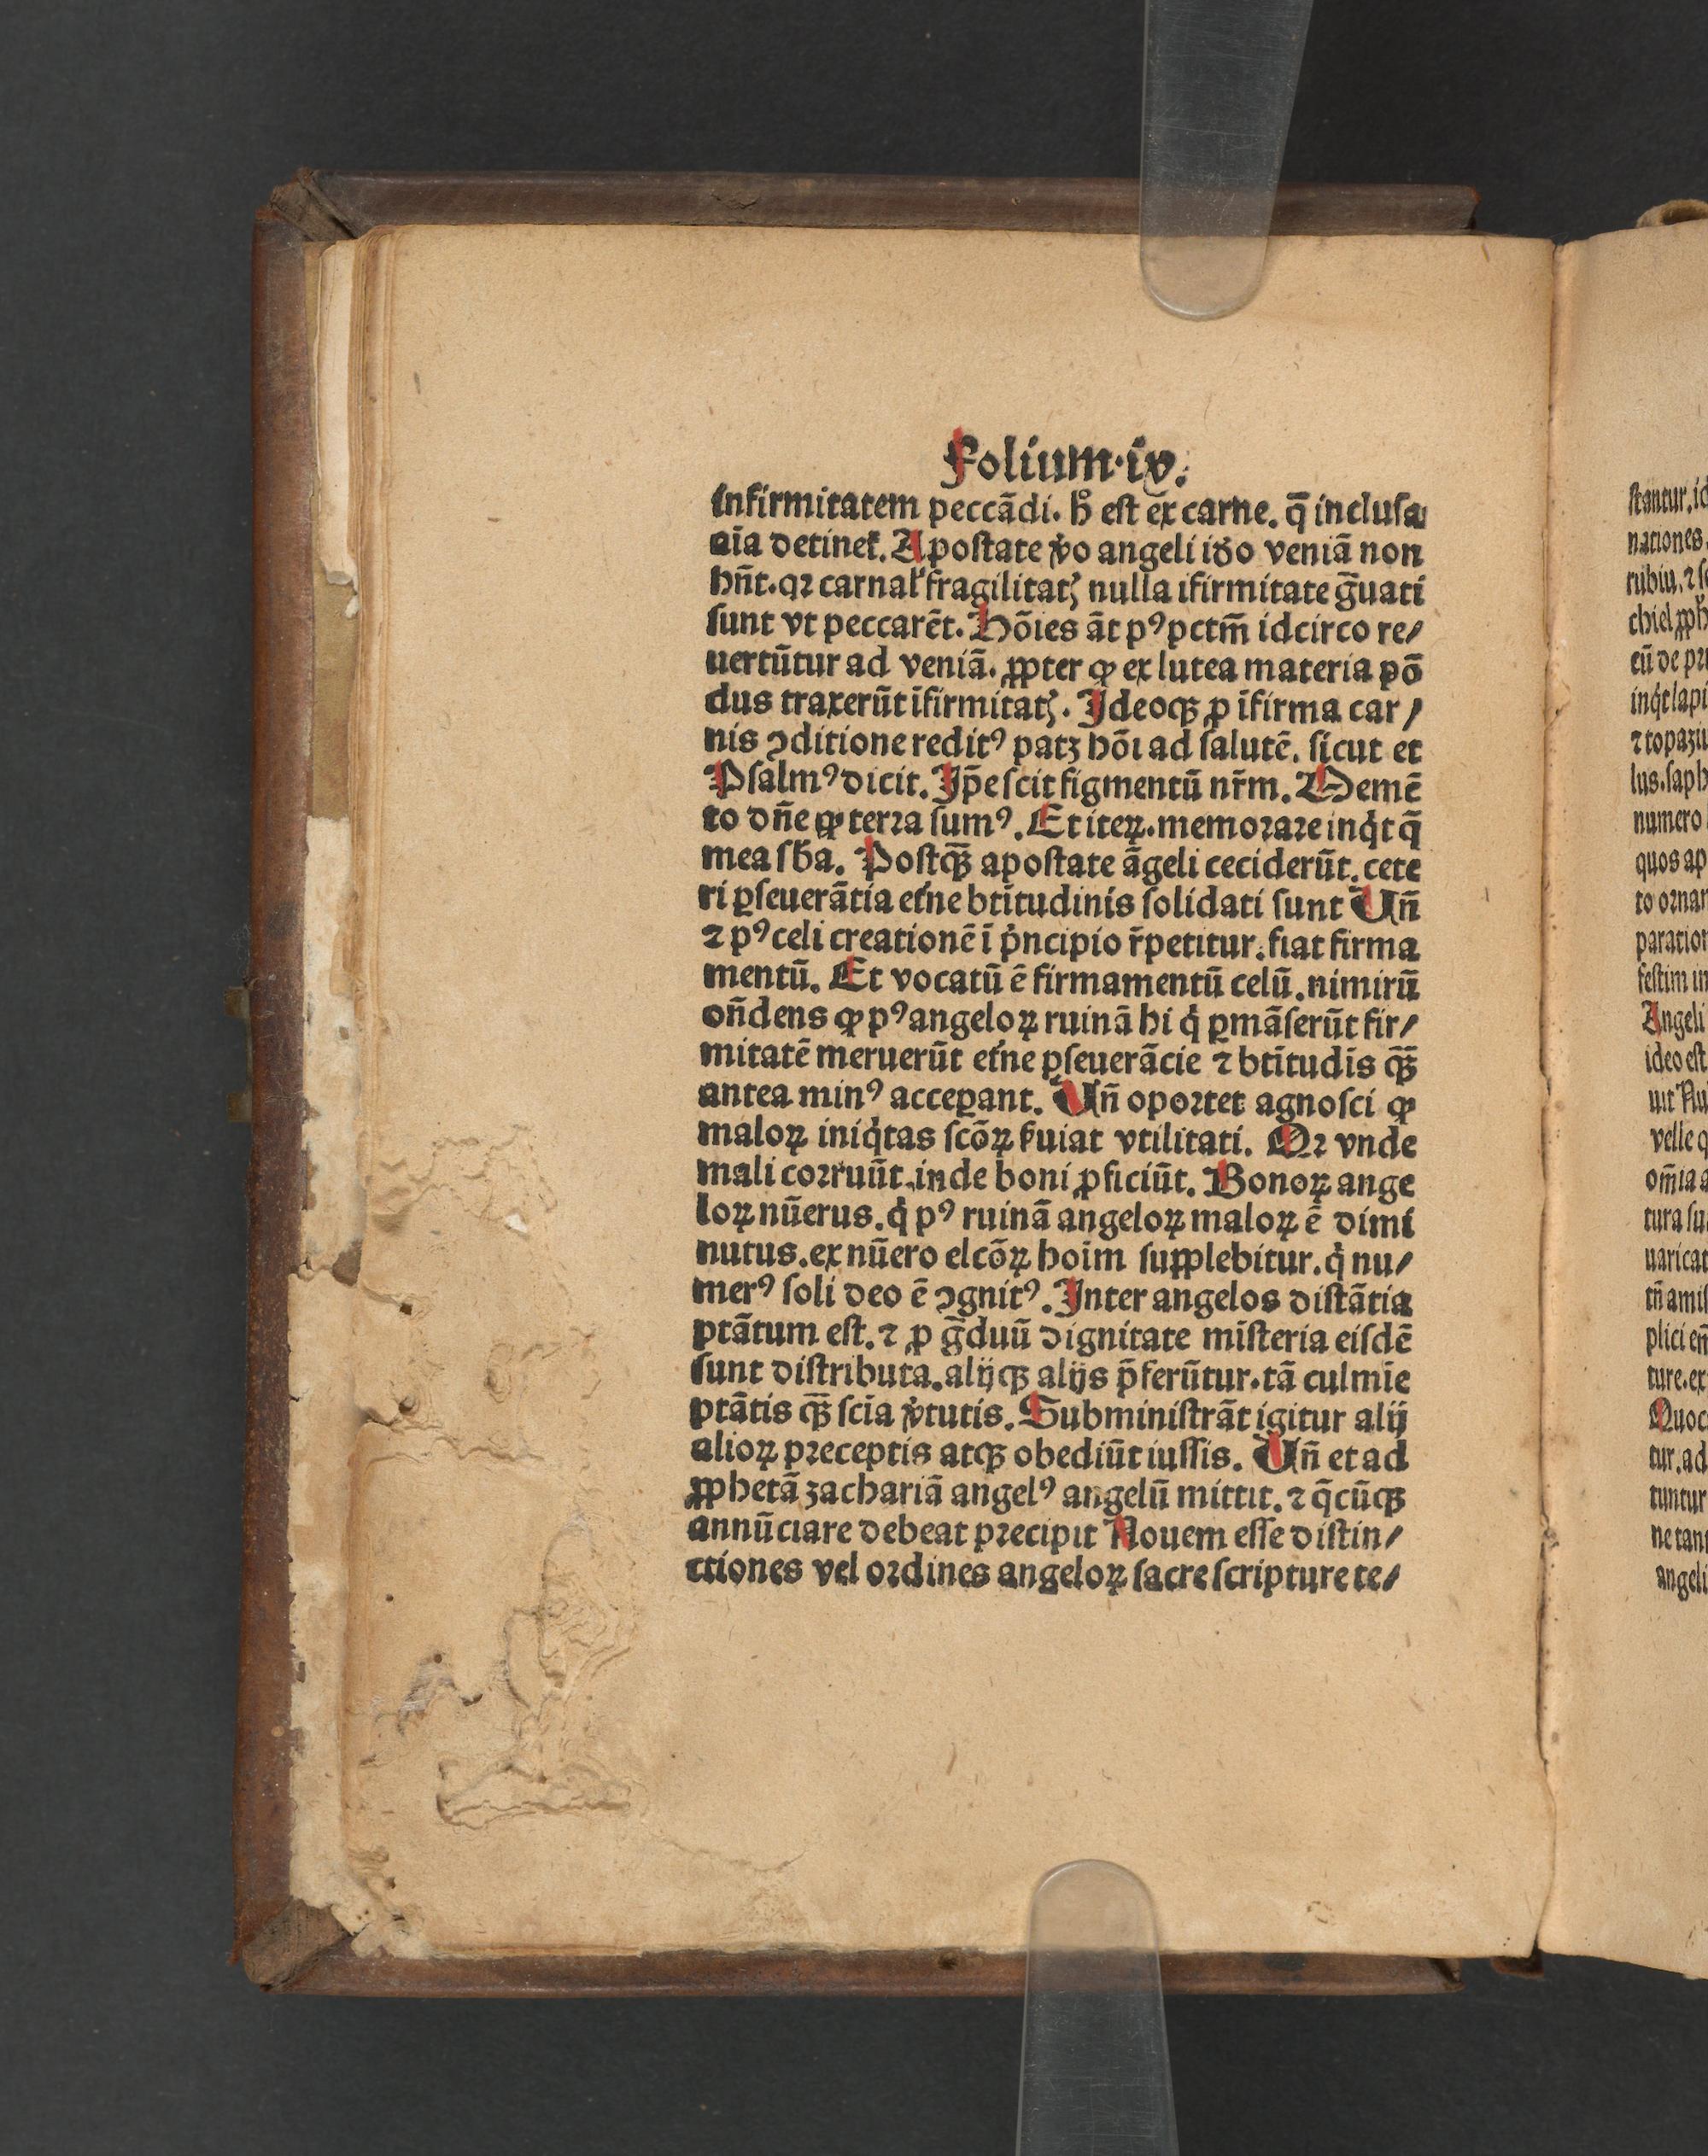 Folium·iv.
infirmitatem peccādi. hͦ est ex carne. q̄ inclusa
aīa detinet᷑. Apostate v̓o angeli iđo veniā non
hn̄t. qꝛ carnal᷑ fragilitatꝭ nulla ifirmitate g̅uati
sunt vt peccarēt. Hōies āt pꝰ pctm̄ idcirco re⸗
uertūtur ad veniā. ꝓpter ꝙ ex lutea materia pō
dus traxerūt īfirmitatꝭ. Ideoqꝫ ꝓ īfirma car⸗
nis ꝯditione reditꝰ patꝫ hōi ad salutē. sicut et
Psalmꝰ dicit. Ip̄e scit figmentū nr̄m. Memē
to dn̄e ꝙ terra sumꝰ. Et iteꝝ. memorare inq̇t q̄
mea sb̄a. Postqꝫ̄ apostate āgeli ceciderūt. cete
ri ꝑseuerātia et᷑ne btītudinis solidati sunt Un̄
⁊ pꝰ celi creationē ī pͥncipio r̄petitur. fiat firma
mentū. Et vocatū ē firmamentū celū. nimirū
on̄dens ꝙ pꝰ angeloꝝ ruinā hi q̇ ꝑmāserūt fir⸗
mitatē meruerūt et᷑ne ꝑseuerācie ⁊ btītudīs qꝫ̄
antea minꝰ acceꝑant. Un̄ oportet agnosci ꝙ
maloꝝ iniq̇tas scōꝝ s᷑uiat vtilitati. Qꝛ vnde
mali corruūt. inde boni ꝓficiūt. Bonoꝝ ange
loꝝ nūerus. q̇ pꝰ ruinā angeloꝝ maloꝝ ē dimi
nutus. ex nūero elcōꝝ hoīm supplebitur. q̇ nu⸗
merꝰ soli deo ē ꝯgnitꝰ. Inter angelos distātia
ptātum est. ⁊ ꝓ g̅duū dignitate mīsteria eisdē
sunt distributa. alijqꝫ alijs p̄ferūtur. tā culmīe
ptātis qꝫ̄ scīa v̓tutis. Subministrāt igitur alij
alioꝝ preceptis atqꝫ obediūt iussis. Un̄ et ad
ꝓphetā zachariā angelꝰ angelū mittit. ⁊ q̄cūqꝫ
annūciare debeat precipit Nouem esse distin⸗
ctiones vel ordines angeloꝝ sacre scripture te⸗
stantur. id
nationes.
rubiu. ⁊ se
numero
quos ap
to ornar
paration
festim in
Angeli
ideo est
velle q
om̄ia a
tura su
uaricat
tn̄ amis
plici en̄
ture. ex
Quoc
tur. ad
tuntur
ne tant
angeli